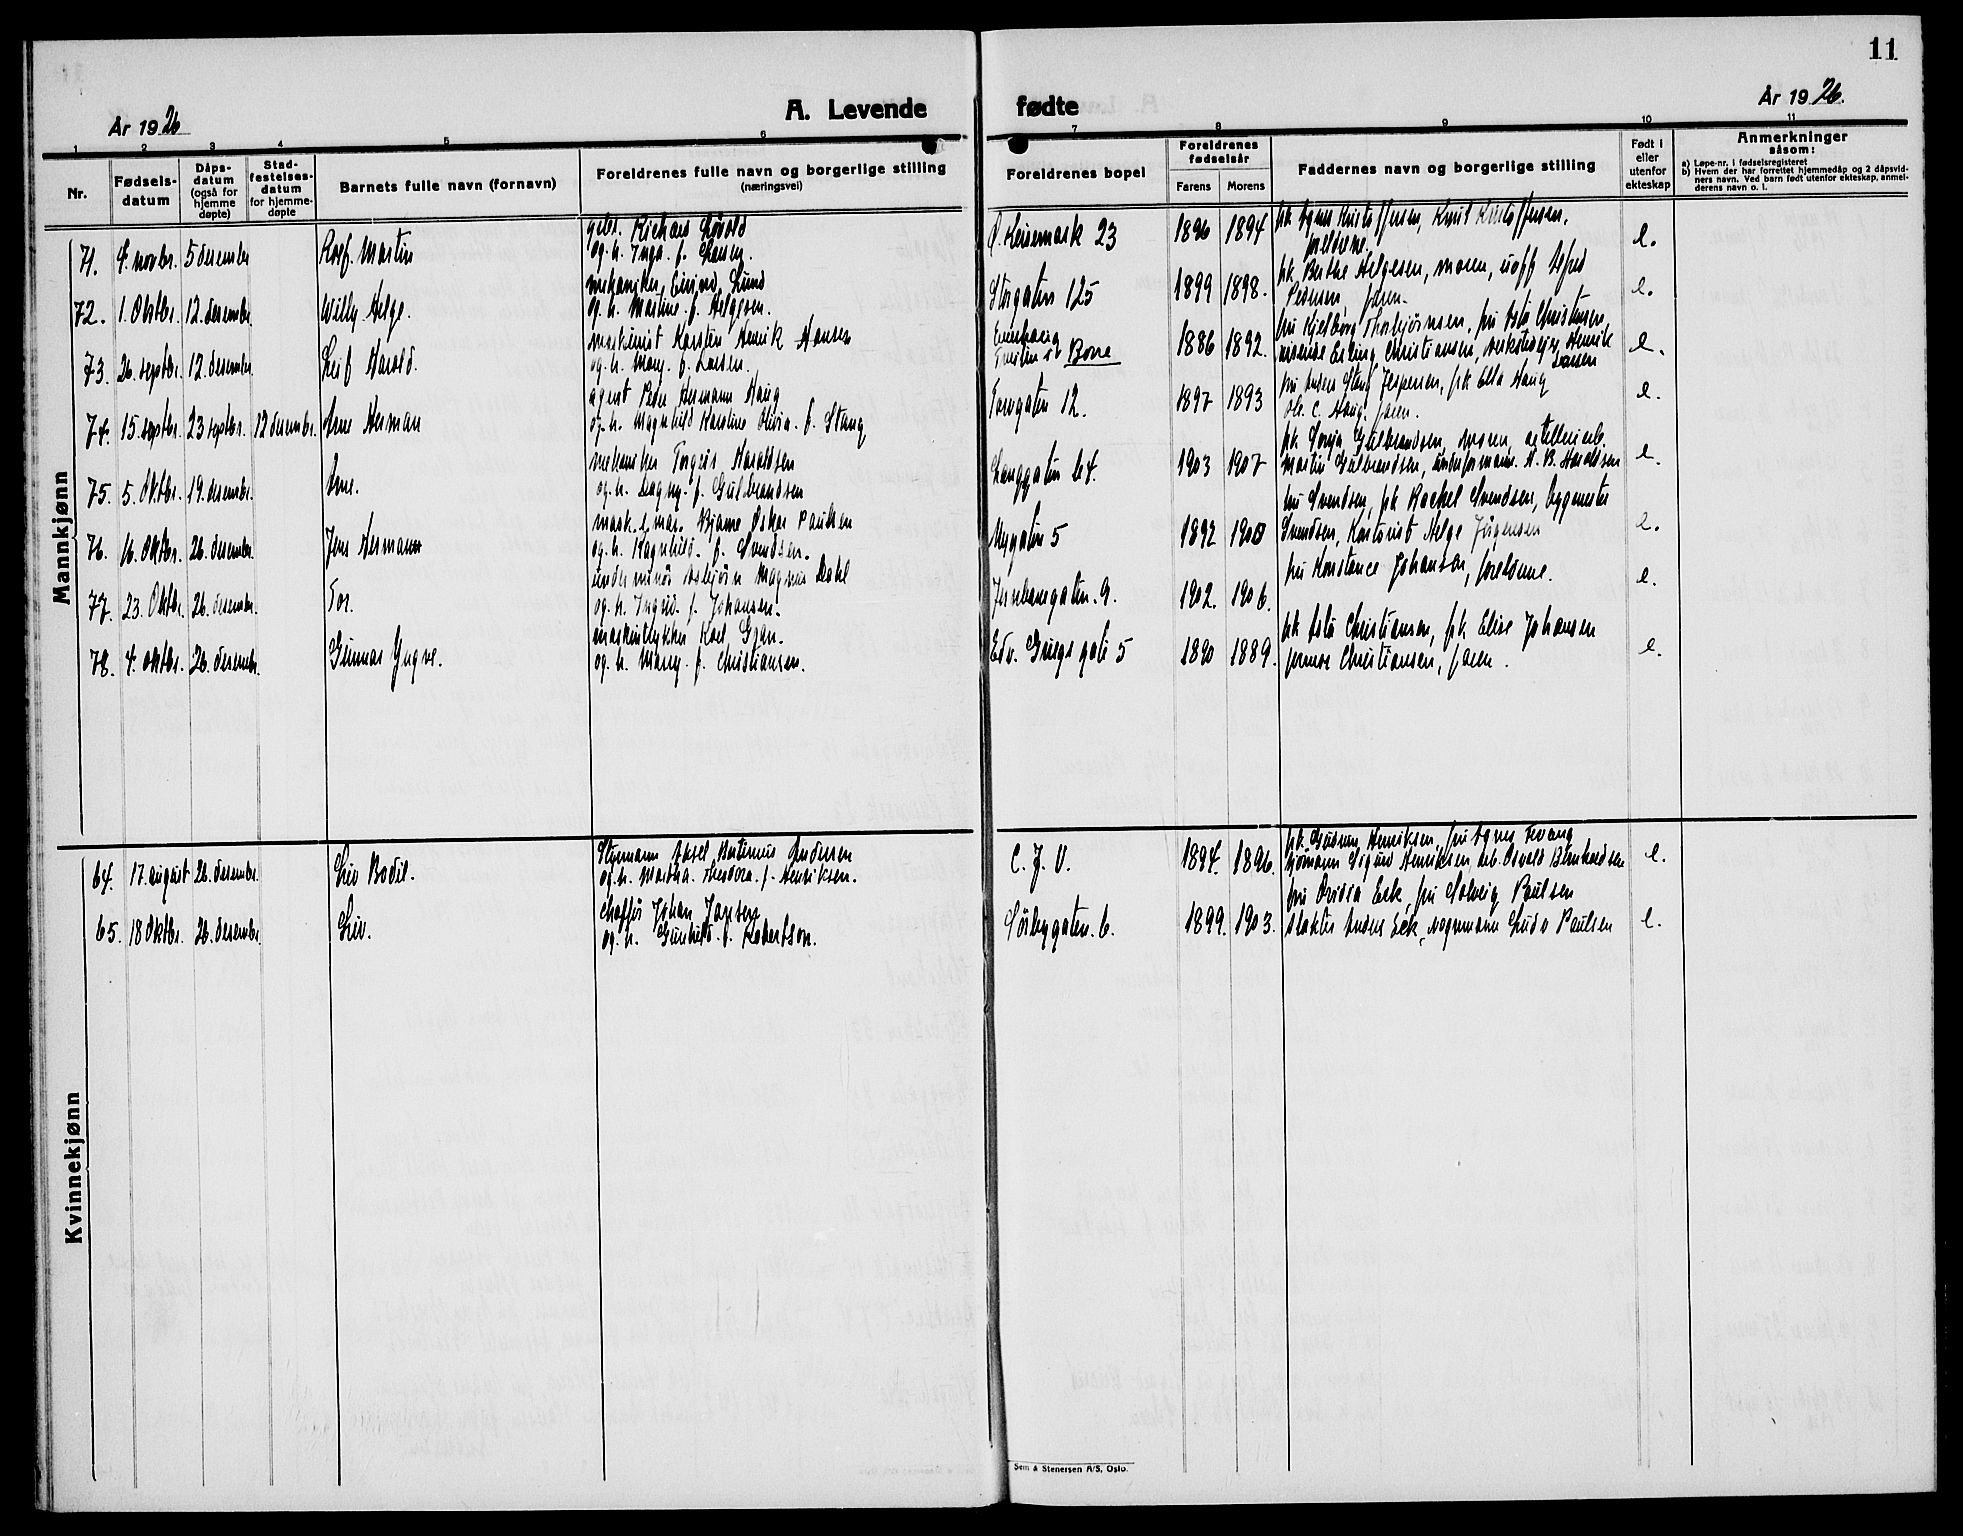 11
År 1926
A. Levende fødte
År 1926.
1 2 3 4 5 6 7 8 9 10 11
Nr.
Fødsels-
datum
Dåps-
datum
(også for
hjemme
døpte)
Stad-
festelses-
datum
for hjemme-
døpte
Barnets fulle navn (fornavn)
Foreldrenes fulle navn og borgerlige stilling
(næringsvei)
Foreldrenes bopel
Foreldrenes
fødselsår
Farens Morens
Faddernes navn og borgerlige stilling
Født i
eller
utenfor
ekteskap
Anmerkninger
såsom:
a) Løpe-nr. i fødselsregisteret
b) Hvem der har forrettet hjemmedåp og 2 dåpsvid-
ners navn. Ved barn født utenfor ekteskap, anmel-
derens navn o. l.
Mannkjønn
71. 4. novbr. 5 desember Rolf. Martin
Richard
og h. Inga. f. Larsen.
23 1896 1894 frk. Agnes Kristoffersen, Knut Kristoffersen,
foreldrene. e.
72. 1. Oktbr. 12. desembr. Willy Helge.
mekaniker Eivind Lund
og h. Martine. f. Helgesen.
Storgaten 125 1899 1898. frk Berthe Helgesen, moren,
Pedersen, faren. e.
73. 26. septbr. 12. desember Leif Harald.
maskinist Karsten Henrik Hansen
og h. Mary. f. Larsen.
Borre 1886 1892. fru Thorbjørnsen, fru Asta Christensen
Erling Christiansen, Henrik
Larsen e.
74. 15. septbr. 23 septbr. 12 desembr. Arne Herman
agent Peder Hermann Haug
og h. Magnhild Karoline Olivia. f. Stang
Torvgaten 12. 1897 1893 fru Stang Jespersen, frk Ella Haug
Ole C. Haug. faren. e.
75. 5. Oktbr. 19. desembr. Arne.
mekaniker Torgeir Haraldsen
og h. Dagny. f. Gulbrandsen
Langgaten 64. 1903 1907 frk. Sonja Gulbrandsen, moren,
Martin Gulbrandsen, H. B. Haraldsen e.
76. 16. Oktbr. 26. desembr. Jens Hermann
mask. Bjarne Oskar Paulsen
og h. Ragnhild. f. Svendsen.
Nygaten 5 1892 fru Svendsen, frk Rachel Svendsen, bygmester
Svendsen, Helge Jørgensen e.
77. 23. Oktbr. 26. desembr. Tor.
Asbjørn Magnus Dahl
og h. Ingrid. f. Johansen.
Jernbanegaten. 9. 1902. 1906. fru Konstance Johansen, foreldrene. e.
78. 4. oktbr. 26. desembr. Gunnar Yngve.
Karl Gran.
og h. Mary. f. Christiansen.
Edv. Griegs gate 5 1890 1889. frk Asta Christiansen, frk Elise Johansen
Christiansen, faren. e.
Kvinnekjønn
64. 17. august 26. desember. Liv Bodil.
Styrmann Aksel Andersen
og h. Martha. Theodora. f. Henriksen.
C. J. V. 1894. 1896. frk. Gudrun Henriksen, fru Agnes Tevang
sjømann Sigurd Henriksen arb. Osvald Bernhardsen e.
65. 18 Oktbr. 26. desember. Liv.
chaffør Johan Jansen
og h. Gunhild. f. Robertson.
Sørbygaten. 6. 1899. 1903. fru Eek, fru Solveig Paulsen
slakter Anders Eek, vognmann Ludv Paulsen e.
Sem & Stenersen A/S, Oslo.